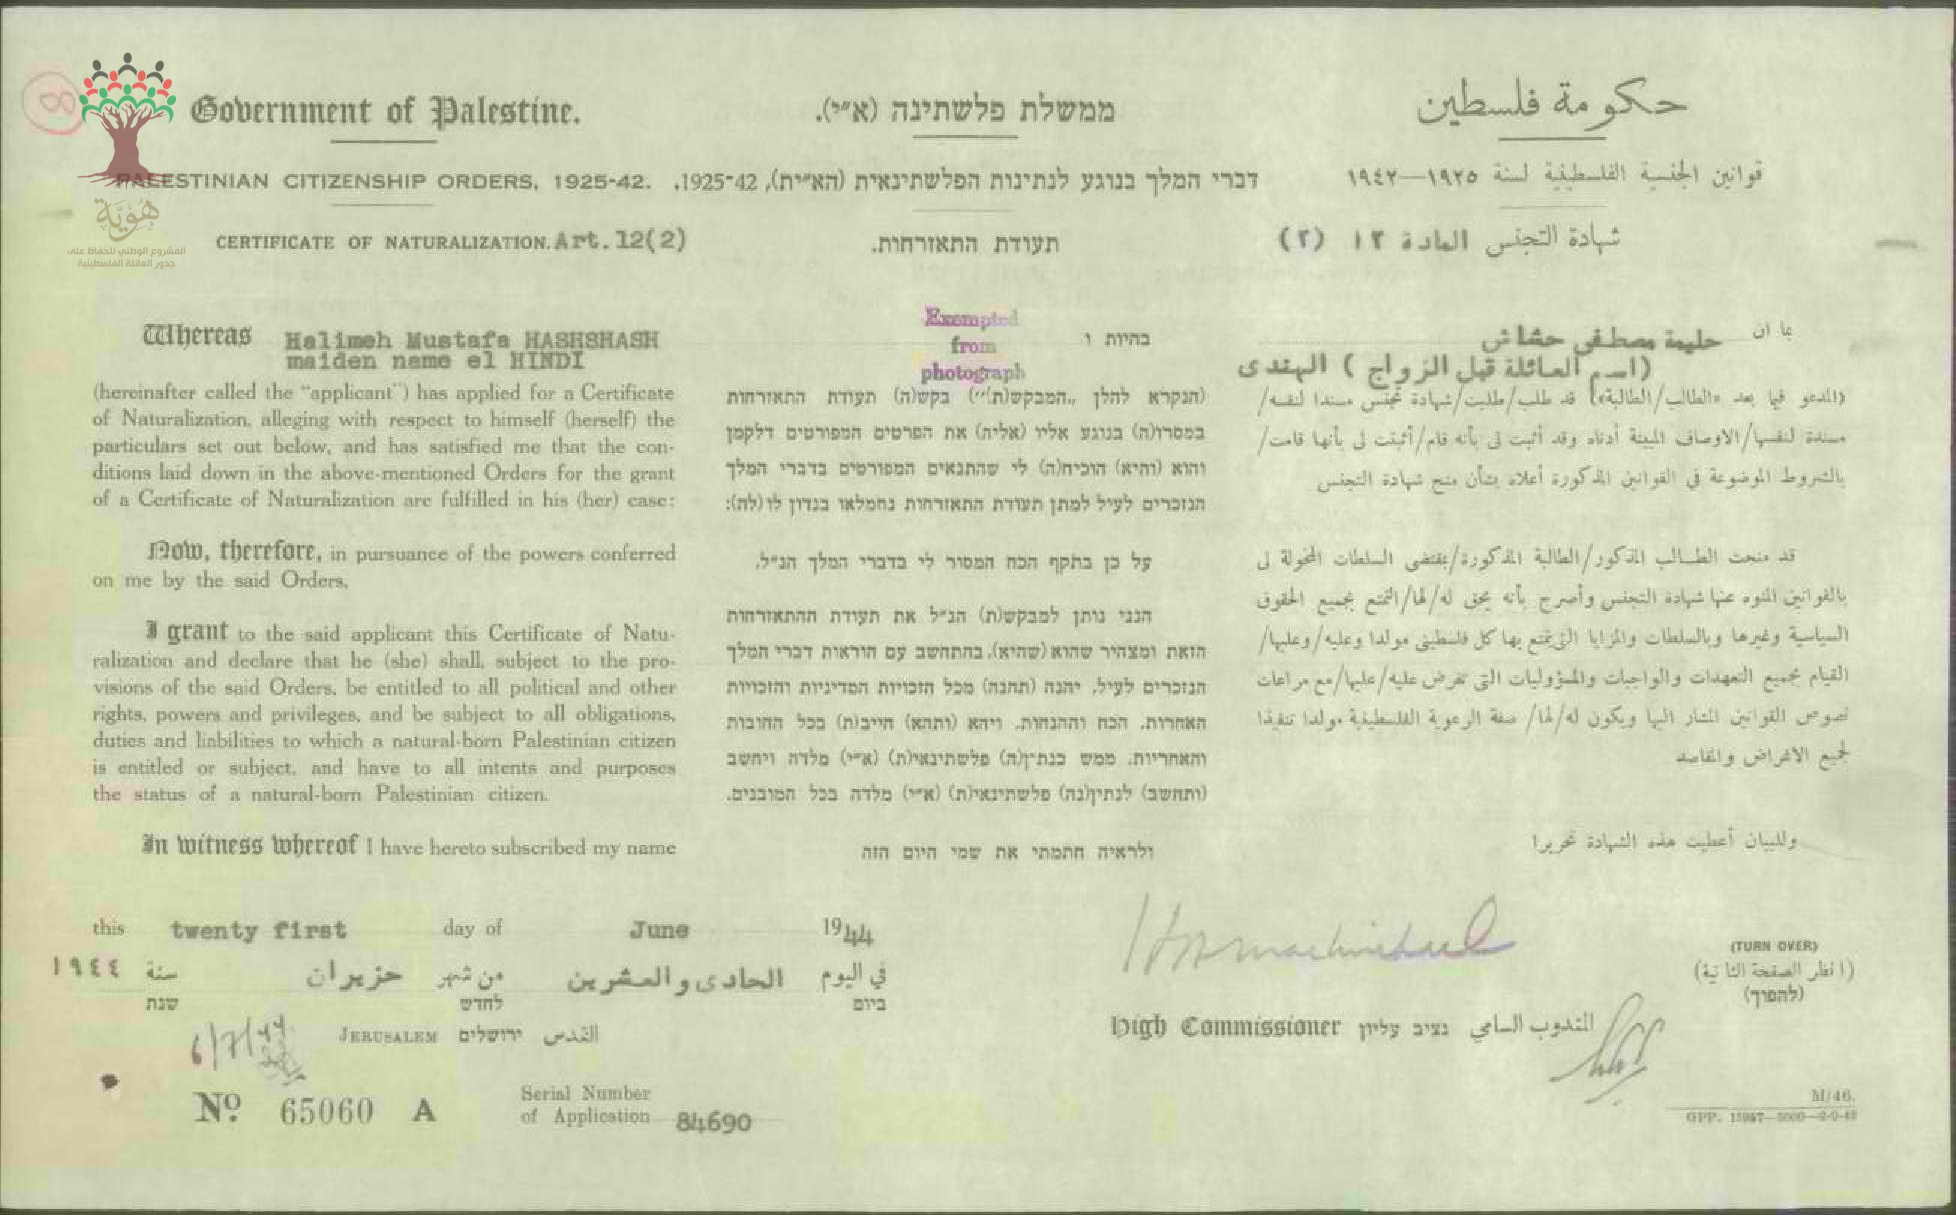 Government of Palestine.
ממשלת פלשתינה (א״י).
حكومة فلسطين
PALESTINIAN CITIZENSHIP ORDERS, 1925-42.
דברי המלך בנוגע לנתינות הפלשתינאית (הא״ית), 1925-42.
قوانين الجنسية الفلسطينية لسنة ١٩٢٥—١٩٤٢
CERTIFICATE OF NATURALIZATION. Art. 12(2)
תעודת התאזרחות.
شهادة التجنس المادة ١٢ (٢)
هُوِيَّة
المشروع الوطني للحفاظ على
جذور العائلة الفلسطينية
8
Whereas Halimeh Mustafa HASHSHASH
maiden name el HINDI
(hereinafter called the “applicant”) has applied for a Certificate
of Naturalization, alleging with respect to himself (herself) the
particulars set out below, and has satisfied me that the con-
ditions laid down in the above-mentioned Orders for the grant
of a Certificate of Naturalization are fulfilled in his (her) case:
Now, therefore, in pursuance of the powers conferred
on me by the said Orders,
I grant to the said applicant this Certificate of Natu-
ralization and declare that he (she) shall, subject to the pro-
visions of the said Orders, be entitled to all political and other
rights, powers and privileges, and be subject to all obligations,
duties and liabilities to which a natural-born Palestinian citizen
is entitled or subject, and have to all intents and purposes
the status of a natural-born Palestinian citizen.
In witness whereof I have hereto subscribed my name
Exempted
from
photograph
בהיות ו
(הנקרא להלן „המבקש(ת)״) בקש(ה) תעודת התאזרחות
במסרו(ה) בנוגע אליו (אליה) את הפרטים המפורטים דלקמן
והוא (והיא) הוכיח(ה) לי שהתנאים המפורטים בדברי המלך
הנזכרים לעיל למתן תעודת התאזרחות נתמלאו בנדון לו (לה):
על כן בתקף הכח המסור לי בדברי המלך הנ״ל,
הנני נותן למבקש(ת) הנ״ל את תעודת ההתאזרחות
הזאת ומצהיר שהוא (שהיא), בהתחשב עם הוראות דברי המלך
הנזכרים לעיל, יהנה (תהנה) מכל הזכויות המדיניות והזכויות
האחרות, הכח וההנחות, ויהא (ותהא) חייב(ת) בכל החובות
והאחריות, ממש כנתין(ה) פלשתינאי(ת) (א״י) מלדה ויחשב
(ותחשב) לנתין(נה) פלשתינאי(ת) (א״י) מלדה בכל המובנים.
ולראיה חתמתי את שמי היום הזה
بما ان حليمة مصطفى حشاش
(اسم العائلة قبل الزواج) الهندى
(المدعو فيما بعد «الطالب/الطالبة») قد طلب/طلبت/شهادة تجنس مسندا لنفسه/
مسندة لنفسها/الاوصاف المبينة أدناه وقد أثبت لى بأنه قام/أثبتت لى بأنها قامت/
بالشروط الموضوعة في القوانين المذكورة أعلاه بشأن منح شهادة التجنس
قد منحت الطالب المذكور/الطالبة المذكورة/بمقتضى السلطات المخولة لى
بالقوانين المنوه عنها شهادة التجنس وأصرح بأنه يحق له/لها/التمتع بجميع الحقوق
السياسية وغيرها وبالسلطات والمزايا التي يتمتع بها كل فلسطينى مولدا وعليه/وعليها/
القيام بجميع التعهدات والواجبات والمسؤوليات التى تفرض عليه/عليها/مع مراعات
نصوص القوانين المشار اليها ويكون له/لها/ صفة الرعوية الفلسطينية مولدا تنفيذا
لجميع الاغراض والمقاصد
وللبيان أعطيت هذه الشهادة تحريرا
this twenty first day of June 1944
في اليوم الحادى والعشرين من شهر حزيران سنة ١٩٤٤
ביום לחדש שנת
JERUSALEM ירושלים القدس
6/7/44
No. 65060 A
Serial Number
of Application 84690
High Commissioner נציב עליון المندوب السامي
(TURN OVER)
(انظر الصفحة الثانية)
(להפוך)
M/46.